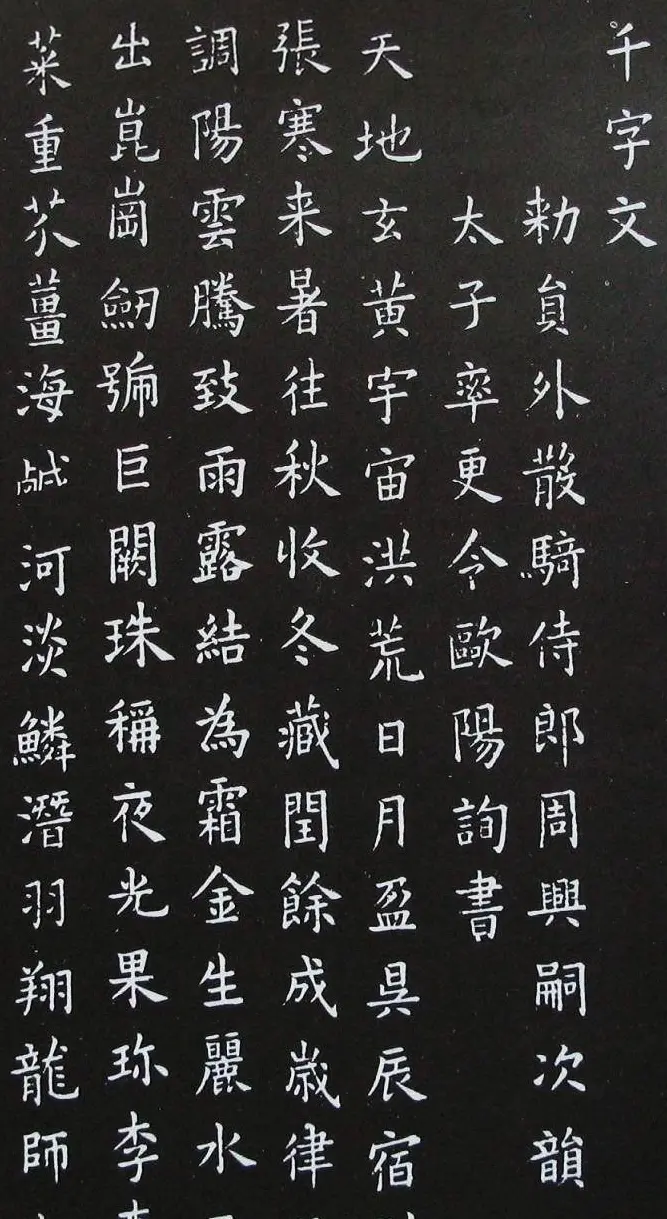 千字文
勑員外散騎侍郎周興嗣次韻
太子率更令歐陽詢書
天地玄黃宇宙洪荒日月盈昃辰宿
張寒来暑往秋收冬藏閏餘成歲律
調陽雲騰致雨露結為霜金生麗水
出崑崗劒號巨闕珠稱夜光果珎李
菜重芥薑海鹹河淡鱗潛羽翔龍師